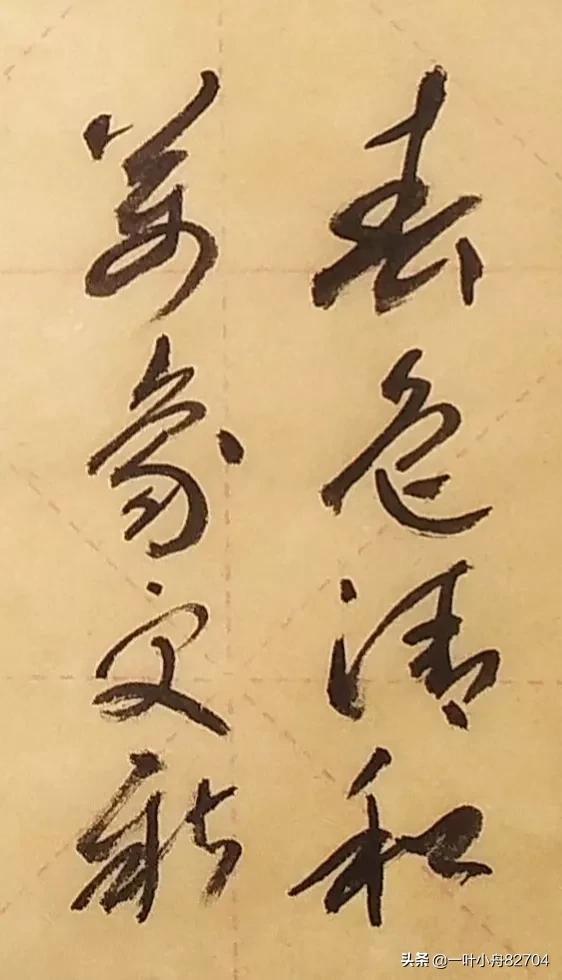 春色清和
萬象文新
头条 @一叶小舟82704